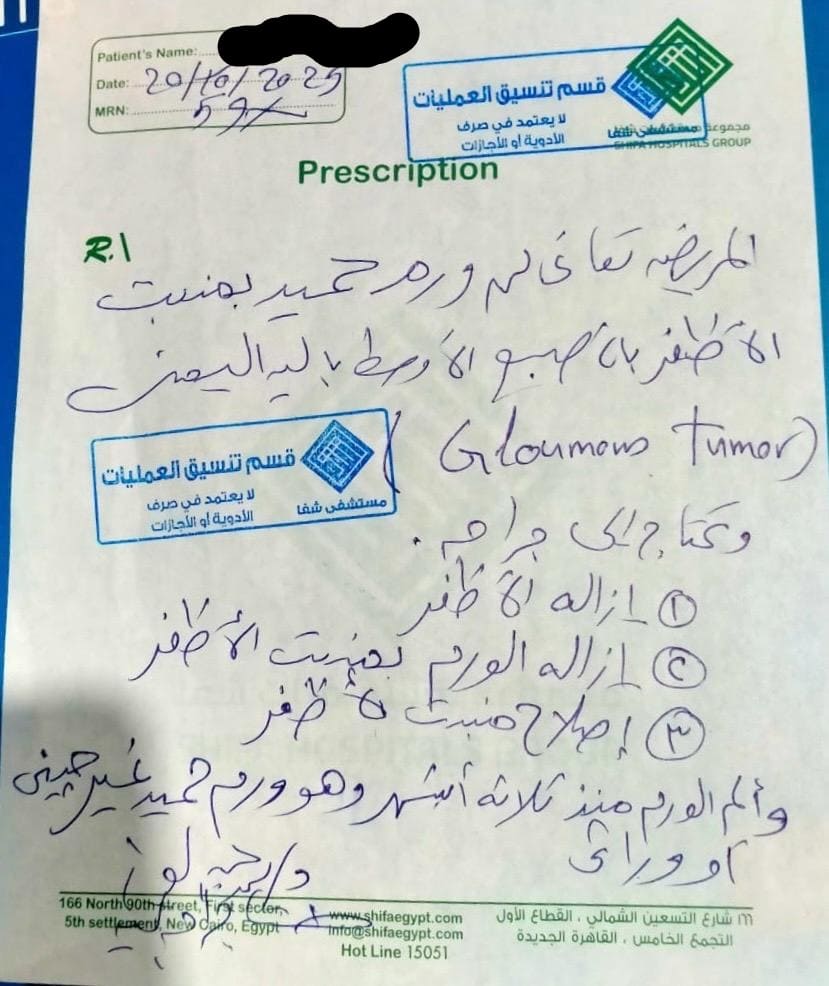 Patient's Name:
Date: 20/10/2025
MRN:
قسم تنسيق العمليات
لا يعتمد في صرف
الأدوية أو الأجازات
مستشفى شفا
مجموعة
SHIFA HOSPITALS GROUP
Prescription
R.\
المريضه تعانى من ورم حميد بمنبت
الأظفر بالأصبع الأوسط باليد اليمنى
(Gloumous tumor)
قسم تنسيق العمليات
لا يعتمد في صرف
الأدوية أو الأجازات
مستشفى شفا
وتحتاج إلى جراحه.
١ إزاله الأظفر
٢ إزاله الورم بمنبت الأظفر
٣ إصلاح منبت الأظفر
وألم الورم منذ ثلاثة أشهر وهو ورم حميد غير جينى
أو وراثى
166 North 90th street, First sector,
5th settlement, New Cairo, Egypt
www.shifaegypt.com
info@shifaegypt.com
Hot Line 15051
١٦٦ شارع التسعين الشمالي ، القطاع الأول
التجمع الخامس ، القاهرة الجديدة